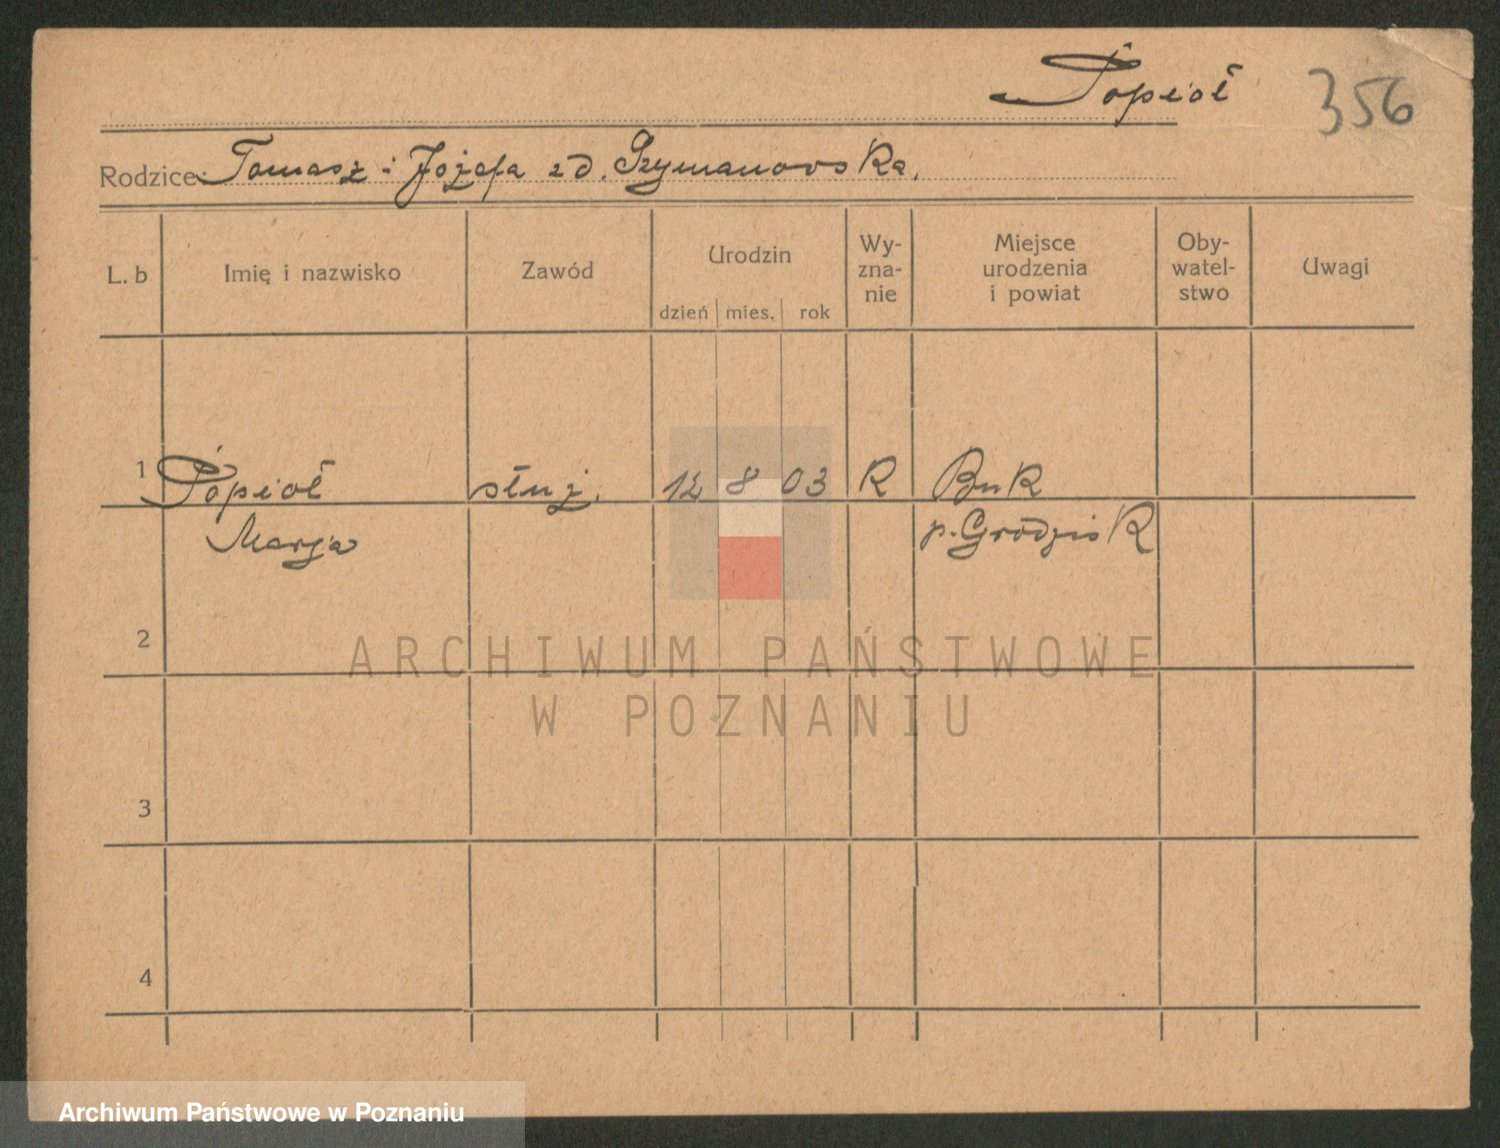 Popioł 356
Rodzice: Tomasz i Józefa zd. Szymanowska.
L. b Imię i nazwisko Zawód Urodzin dzień mies. rok Wy-zna-nie Miejsce urodzenia i powiat Oby-watel-stwo Uwagi
1 Popioł służ. 12 8 03 R Buk
Marja p. Grodzisk
2
ARCHIWUM PAŃSTWOWE
W POZNANIU
3
4
Archiwum Państwowe w Poznaniu